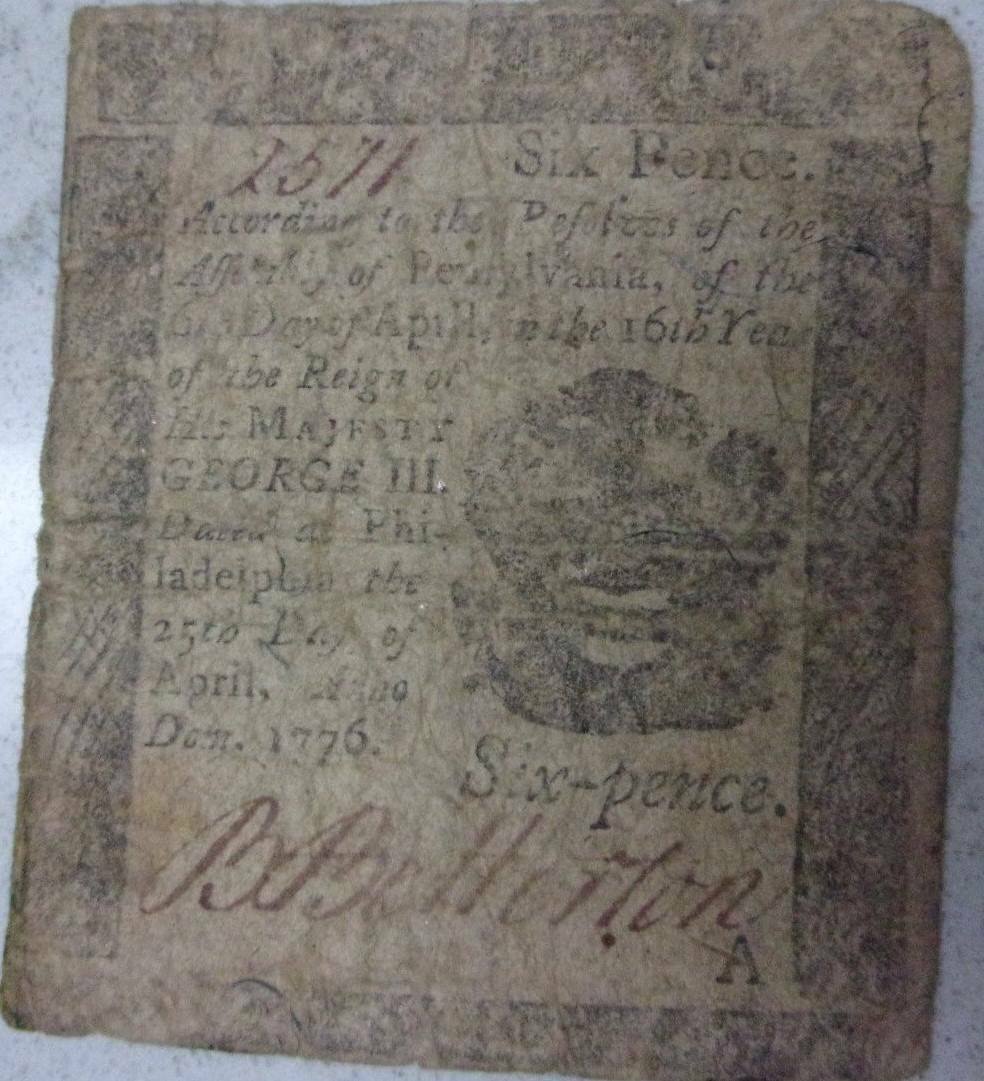 2571 Six Pence.
According to the Resolves of the
Assembly of Pennsylvania, of the
Day of April, in the 16th Year
of the Reign of
His MAJESTY
GEORGE III.
Dated at Phi-
ladelphia the
25th Day of
April, Anno
Dom. 1776.
Six-pence.
A